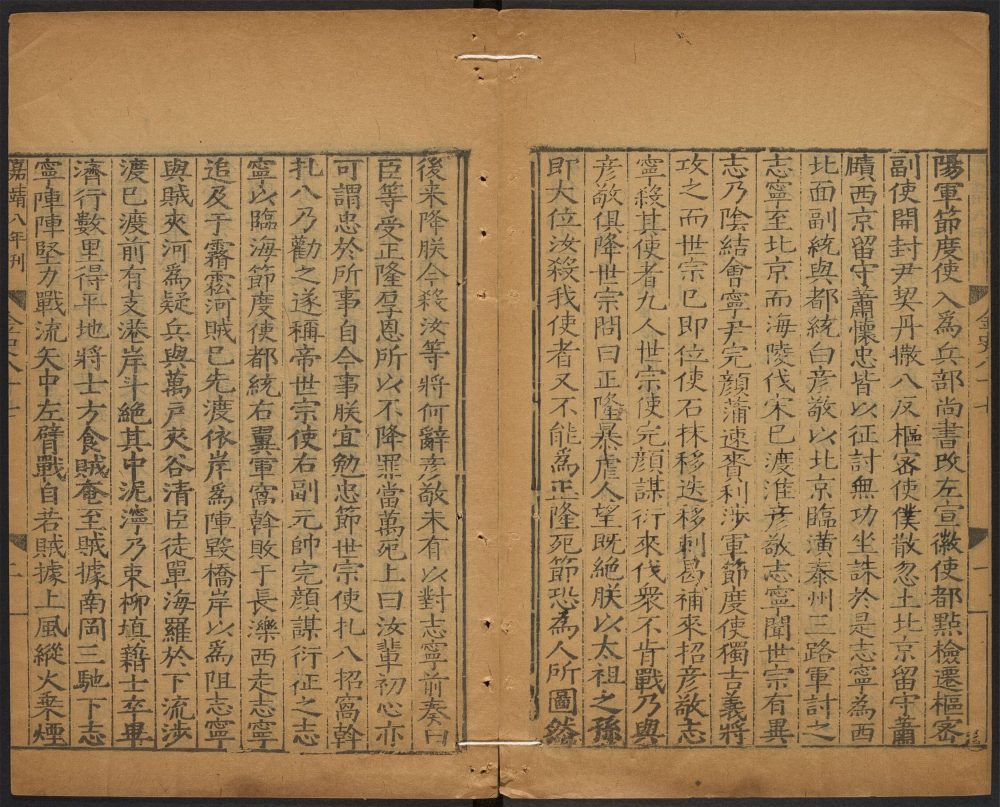 陽軍節度使入爲兵部尚書改左宣徽使都㸃檢遷樞密
副使開封尹契丹撒八反樞密使僕散忽土北京留守蕭
賾西京留守蕭懷忠皆以征討無功坐誅於是志寧爲西
北面副統與都統白彦敬以北京臨潢泰州三路軍討之
志寧至北京而海陵伐宋已渡淮彦敬志寧聞世宗有異
志乃陰結會寧尹完顔蒲速賚利渉軍節度使獨吉義將
攻之而世宗已即位使石抹移迭移剌曷補來招彦敬志
寧殺其使者九人世宗使完顔謀衍來伐衆不肯戰乃與
彦敬俱降世宗問曰正隆暴虐人望既絶朕以太祖之孫
即大位汝殺我使者又不能爲正隆死節恐爲人所圖然
後来降朕今殺汝等將何辭彦敬未有以對志寧前奏曰
臣等受正隆厚恩所以不降罪當萬死上曰汝輩初心亦
可謂忠於所事自今事朕宜勉忠節世宗使扎八招窩斡
扎八乃勸之遂稱帝世宗使右副元帥完顔謀衍征之志
寧以臨海節度使都統右翼軍窩斡敗于長濼西走志寧
追及于霿𩃭河賊已先渡依岸爲陣毀橋岸以爲阻志寧
與賊夾河爲疑兵與萬戸夾谷清臣徒單海羅於下流渉
渡已渡前有支港岸斗絶其中泥濘乃束柳塡藉士卒畢
濟行數里得平地將士方食賊奄至賊據南岡三馳下志
寧陣陣堅力戰流矢中左臂戰自若賊據上風縱火乗煙
嘉靖八年刊